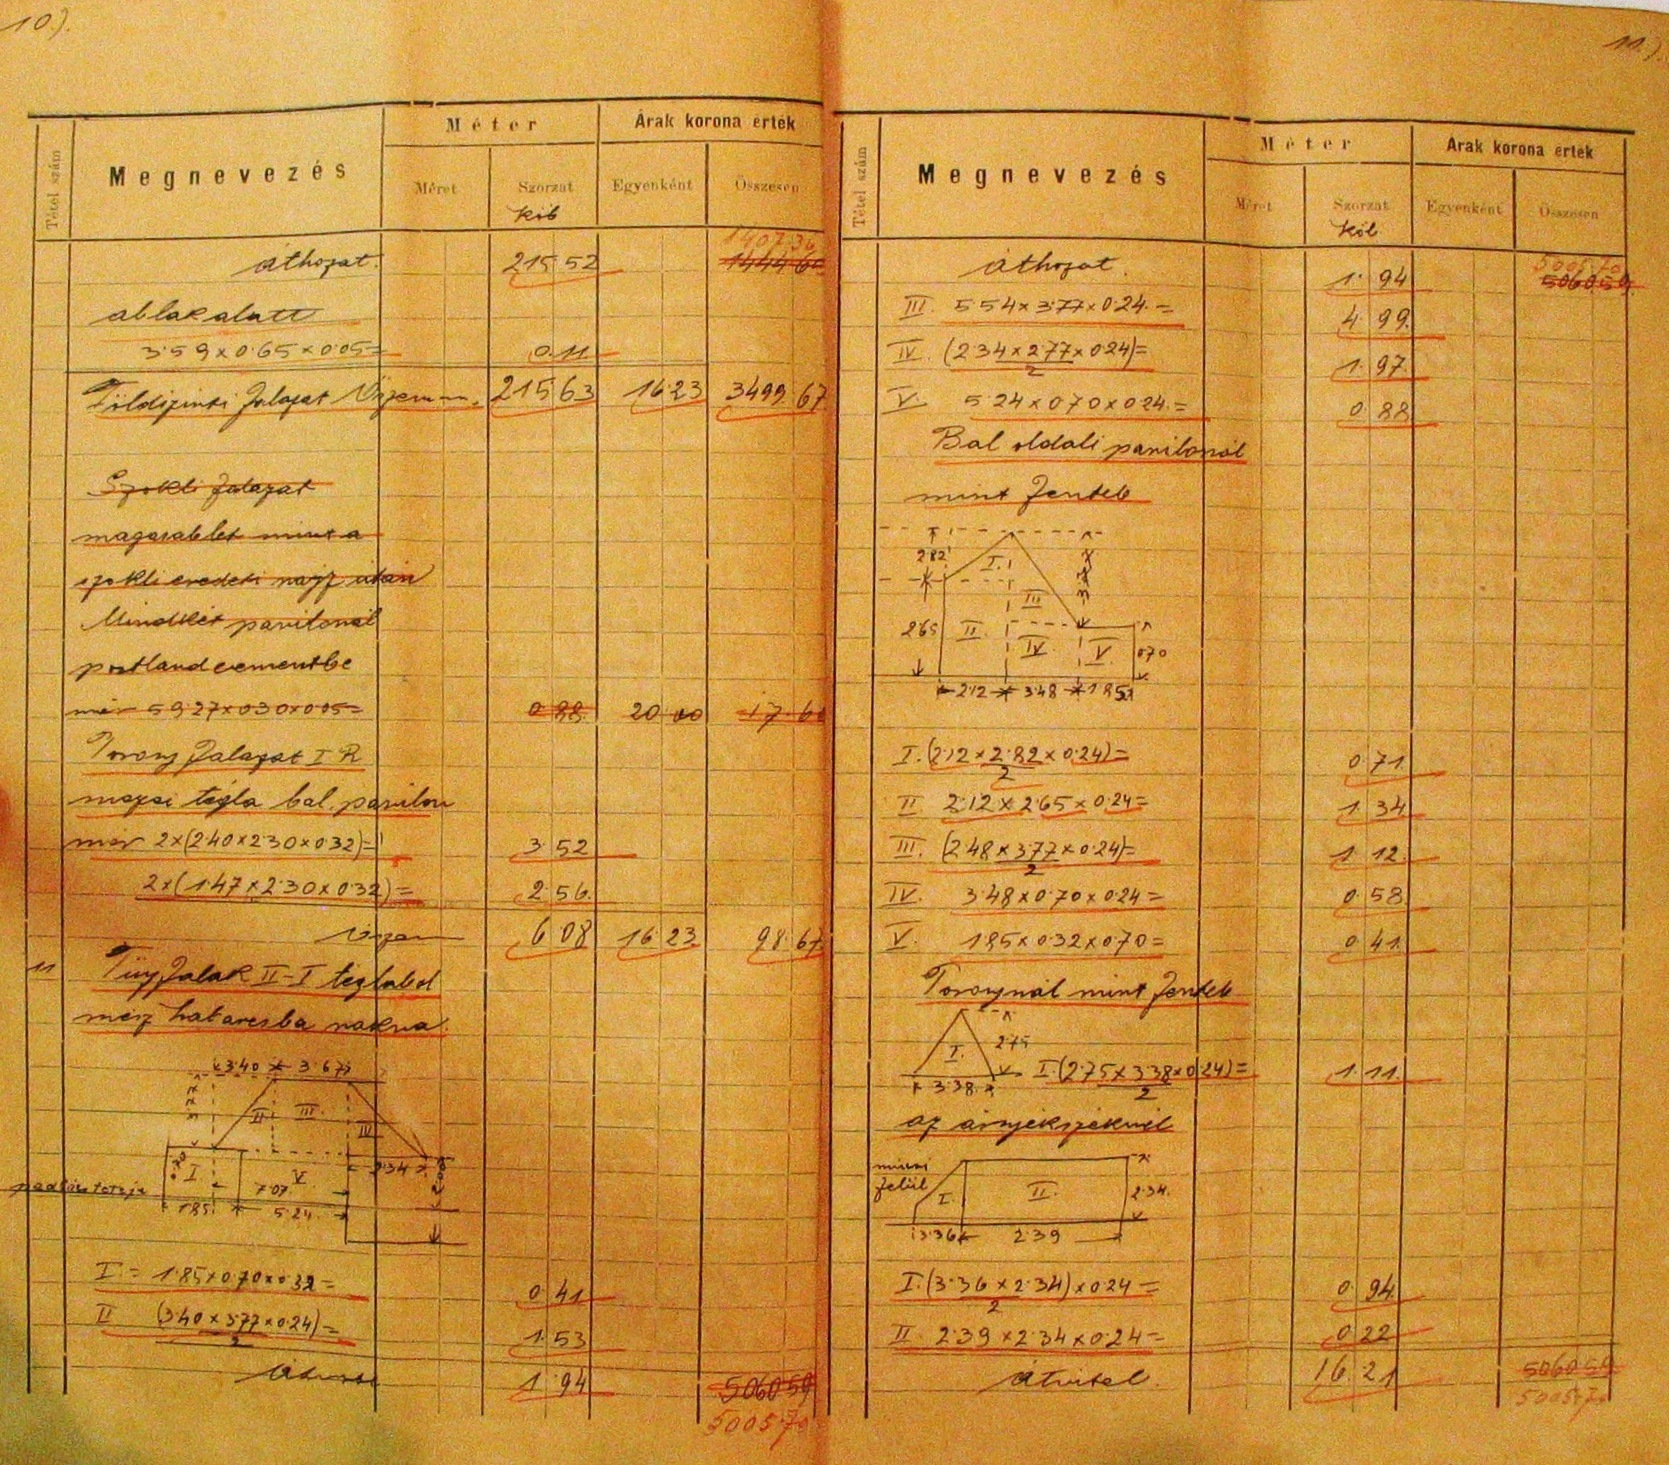 10.).
Tétel szám
Megnevezés
Méter
Árak korona érték
Méret
Szorzat
Egyenként
Összesen
köb
1407.36
áthozat. 215 52 1444 60
ablak alatt
3.59×0.65×0.05= 0.11
Földszinti falazat 215 63 16 23 3499 67
Szokli falazat
magasabbet mint a
szokli eredeti után
Mindkét pavilonál
portland cementbe
59.27×0.30×0.05= 0 88. 20 00 17 60
Torony falazat I R
tégla bal. pavilon
2×(2.40×2.30×0.32)= 3 52
2×(1.47×2.30×0.32)= 2 56.
6 08 16 23 98 67
11 Tűzfalak II-I téglából
mész habarcsba rakva.
3.40 3.67
3.77
II III. IV
0.70 I V. 2.34
7.07
1.85. 5.24
I = 1.85×0.70×0.32= 0 41
II (3.40×3.77×0.24)= 1 53
2
1 94 5060 59
5005.70
11.).
Tétel szám
Megnevezés
Méter
Árak korona érték
Méret
Szorzat
Egyenként
Összesen
köb
5005.70
áthozat. 1. 94 5060 59.
III. 5.54×3.77×0.24.= 4 99.
IV. (2.34×2.77×0.24)= 1 97.
2
V. 5.24×0.70×0.24.= 0 88
Bal oldali pavilonál
mint fentebb
2.82
I.
III
2.65 II. IV. V. 0.70
2.12 3.48 1.85
I. (2.12×2.82×0.24)= 0 71.
2
II 2.12×2.65×0.24= 1 34
III. (2.48×3.77×0.24)= 1 12.
2
IV. 3.48×0.70×0.24= 0 58
V. 1.85×0.32×0.70= 0 41.
Toronynál mint fentebb
I. 2.75
3.38. I. (2.75×3.38×0.24)= 1 11.
2
az árnyékszéknél
felül
I. II. 2.34.
3.36 2.39
I. (3.36×2.34)×0.24= 0 94
2
II 2.39×2.34×0.24= 0 22
átvitel. 16 21 5060 59
5005.70